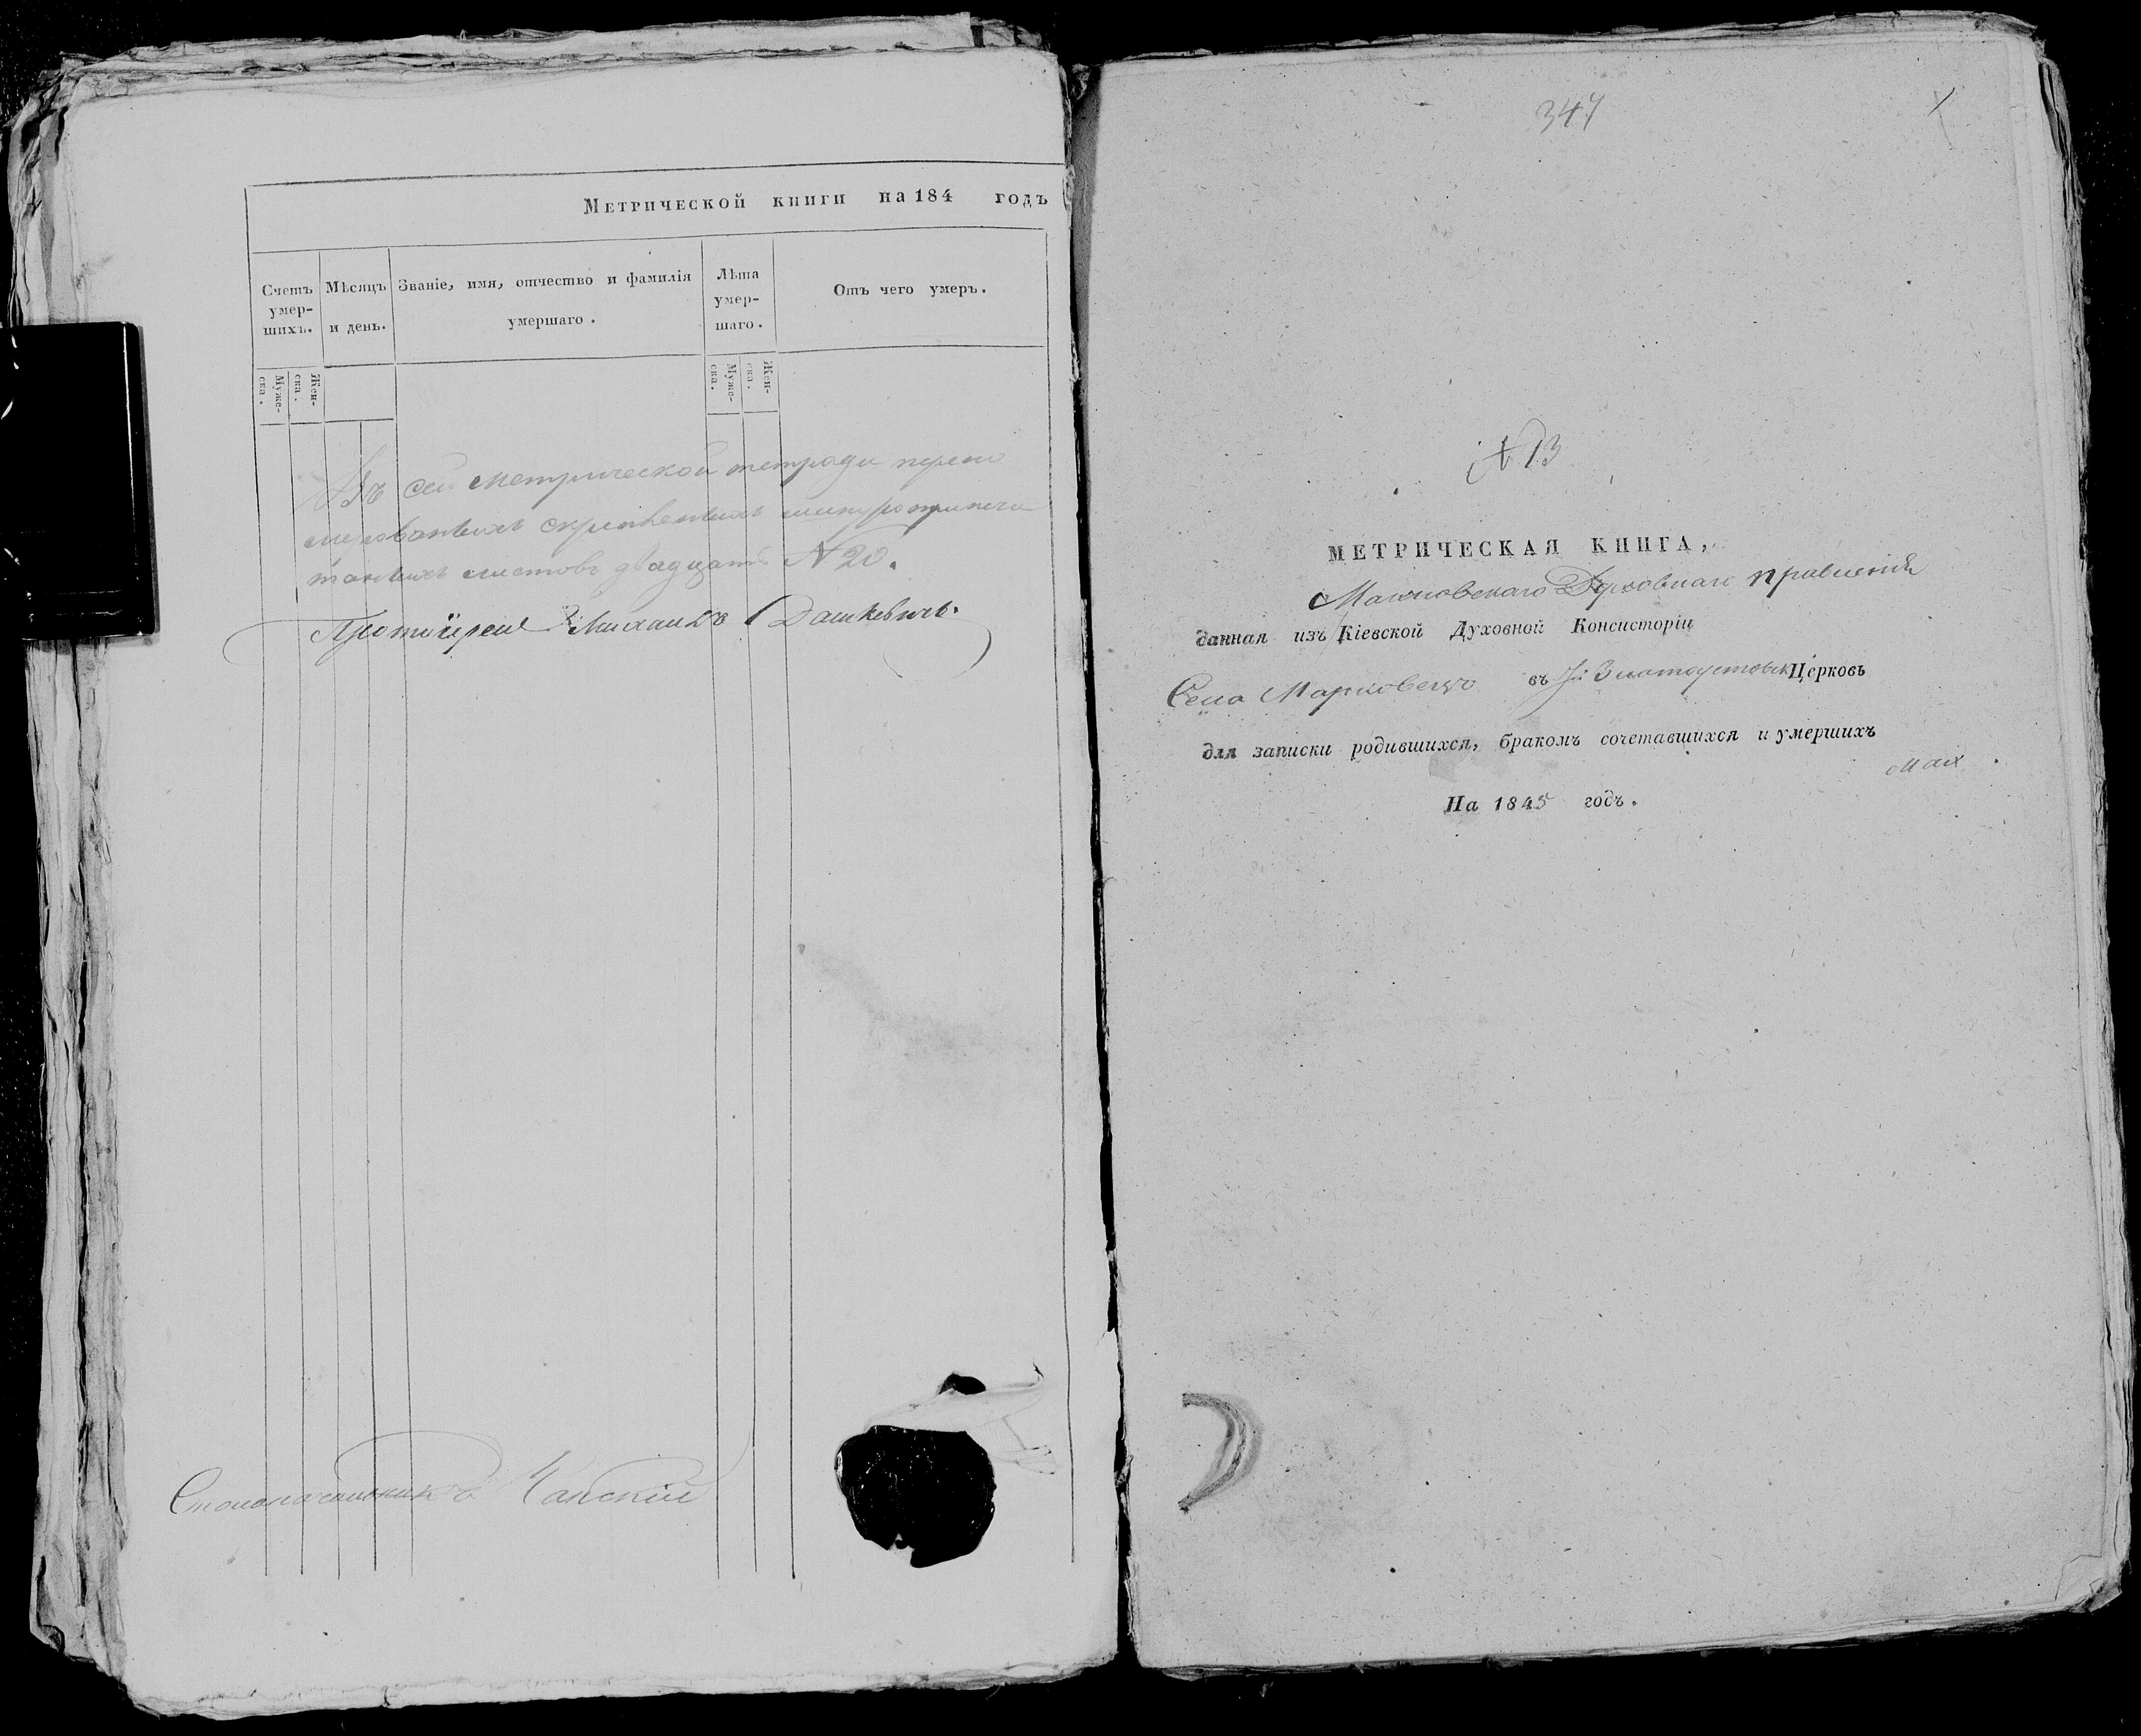 Метрической книги на 184 годъ
Счетъ умер-шихъ.
Мѣсяцъ и день.
Званіе, имя, отчество и фамилія умершаго.
Лѣта умер-шаго.
Отъ чего умеръ.
Муже-ска.
Жен-ска.
Муже-ска.
Жен-ска.
Въ сей метрической тетради перену
мерованныхъ скрепленныхъ шнуроприпеча
танныхъ листовъ двадцать N 20.
Протоіерей Михаилъ Дашкевичъ.
Столоначальникъ
347
N 13
МЕТРИЧЕСКАЯ КНИГА,
Махновскаго Духовнаго правленія
данная изъ Кіевской Духовной Консисторіи
Села въ Златоустовск Церковь
для записки родившихся, бракомъ сочетавшихся и умершихъ
На 1845 годъ.